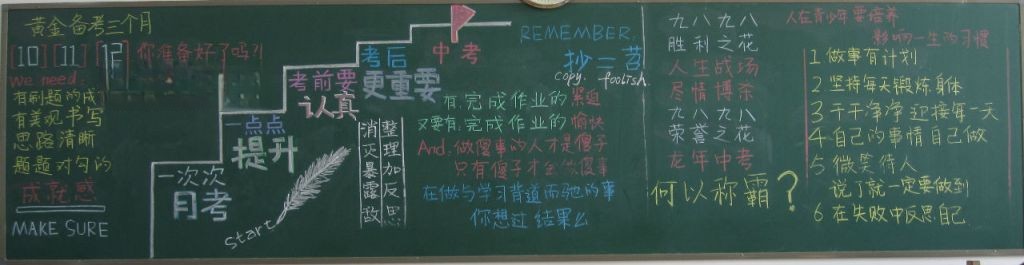 黄金备考三个月
10 11 12 你准备好了吗?!
we need:
有刷题的成
有美观书写
思路清晰
题题对勾的
成就感
MAKE SURE
一次次
月考
一点点
提升
考前要
认真
考后
更重要
中考
start
消灭暴露敌
整理加反思
REMEMBER:
抄 = 苕
copy. foolish
有完成作业的紧迫
又要有:完成作业的愉快
And.做傻事的人才是傻子
只有傻子才会做傻事
在做与学习背道而驰的事
你想过结果么
九八九八
胜利之花
人生战场
尽情博杀
九八九八
荣誉之花
龙年中考
何以称霸?
人在青少年要培养
影响一生的习惯
1 做事有计划
2 坚持每天锻炼身体
3 干干净净迎接每一天
4 自己的事情自己做
5 微笑待人
说了就一定要做到
6 在失败中反思自己